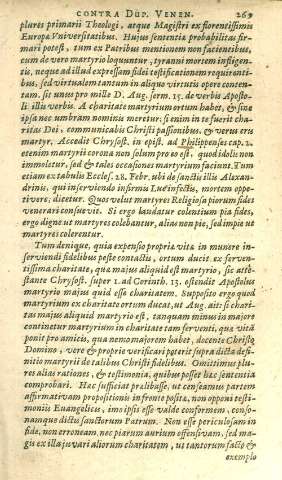 CONTRA DUP. VENEN. 269
plures primarii Theologi, atque Magistri ex florentissimis
Europæ Universitatibus. Hujus sententiæ probabilitas fir-
mari potest, tum ex Patribus mentionem non facientibus,
cum de vero martyrio loquuntur, tyranni mortem infligen-
tis, neque ad illud expressam fidei testificationem requirenti-
bus, sed virtualem tantum in aliquo virtutis opere conten-
tam. sit unus pro mille D. Aug. serm. 15. de verbis Aposto-
li illis verbis. A charitate martyrium ortum habet, & sine
ipsa nec umbram nominis meretur: si enim in te fuerit cha-
ritas Dei, communicabis Christi passionibus, & verus eris
martyr. Accedit Chrysost. in epist. ad Philippenses cap. 2.
etenim martyrii corona non solum pro eo est, quod idolis non
immoletur, sed & tales occasiones martyrium faciunt. Tum
etiam ex tabulis Eccles. 28. Febr. ubi de sanctis illis Alexan-
drinis, qui inserviendo infirmis Lue infectis, mortem oppe-
tivere, dicetur. Quos velut martyres Religiosa piorum fides
venerari consuevit. Si ergo laudatur colentium pia fides,
ergo digne ut martyres colebantur, alias non pie, sed impie ut
martyres colerentur.
Tum denique, quia expensio propria vita in munere in-
serviendi fidelibus peste contactis, ortum ducit ex ferven-
tissima charitate, qua majus aliquid est martyrio, sic atte-
stante Chrysost. super 1. ad Corinth. 13. ostendit Apostolus
martyrio majus quid esse charitatem. Supposito ergo quod
martyrium ex charitate ortum ducat, ut Aug. ait: si chari-
tas majus aliquid martyrio est, tanquam minus in majore
continetur martyrium in charitate tam ferventi, quæ vitã
ponit pro amicis, qua nemo majorem habet, docente Christo
Domino, vere & proprie verificari poterit supra dicta defi-
nitio martyrii de talibus Christi fidelibus. Omittimus plu-
res alias rationes, & testimonia, quibus posset hæc sententia
comprobari. Hæc sufficiat prælibasse, ut censeamus partem
affirmativam propositionis in fronte posita, non opponi testi-
moniis Euangelicis, imo ipsis esse valde conformem, conso-
namque dictis sanctorum Patrum. Non esse periculosam in
fide, non erroneam, nec piarum aurium offensivam, sed ma-
gis ex illa juvari aliorum charitatem, ut tantorum facto &
exemplo